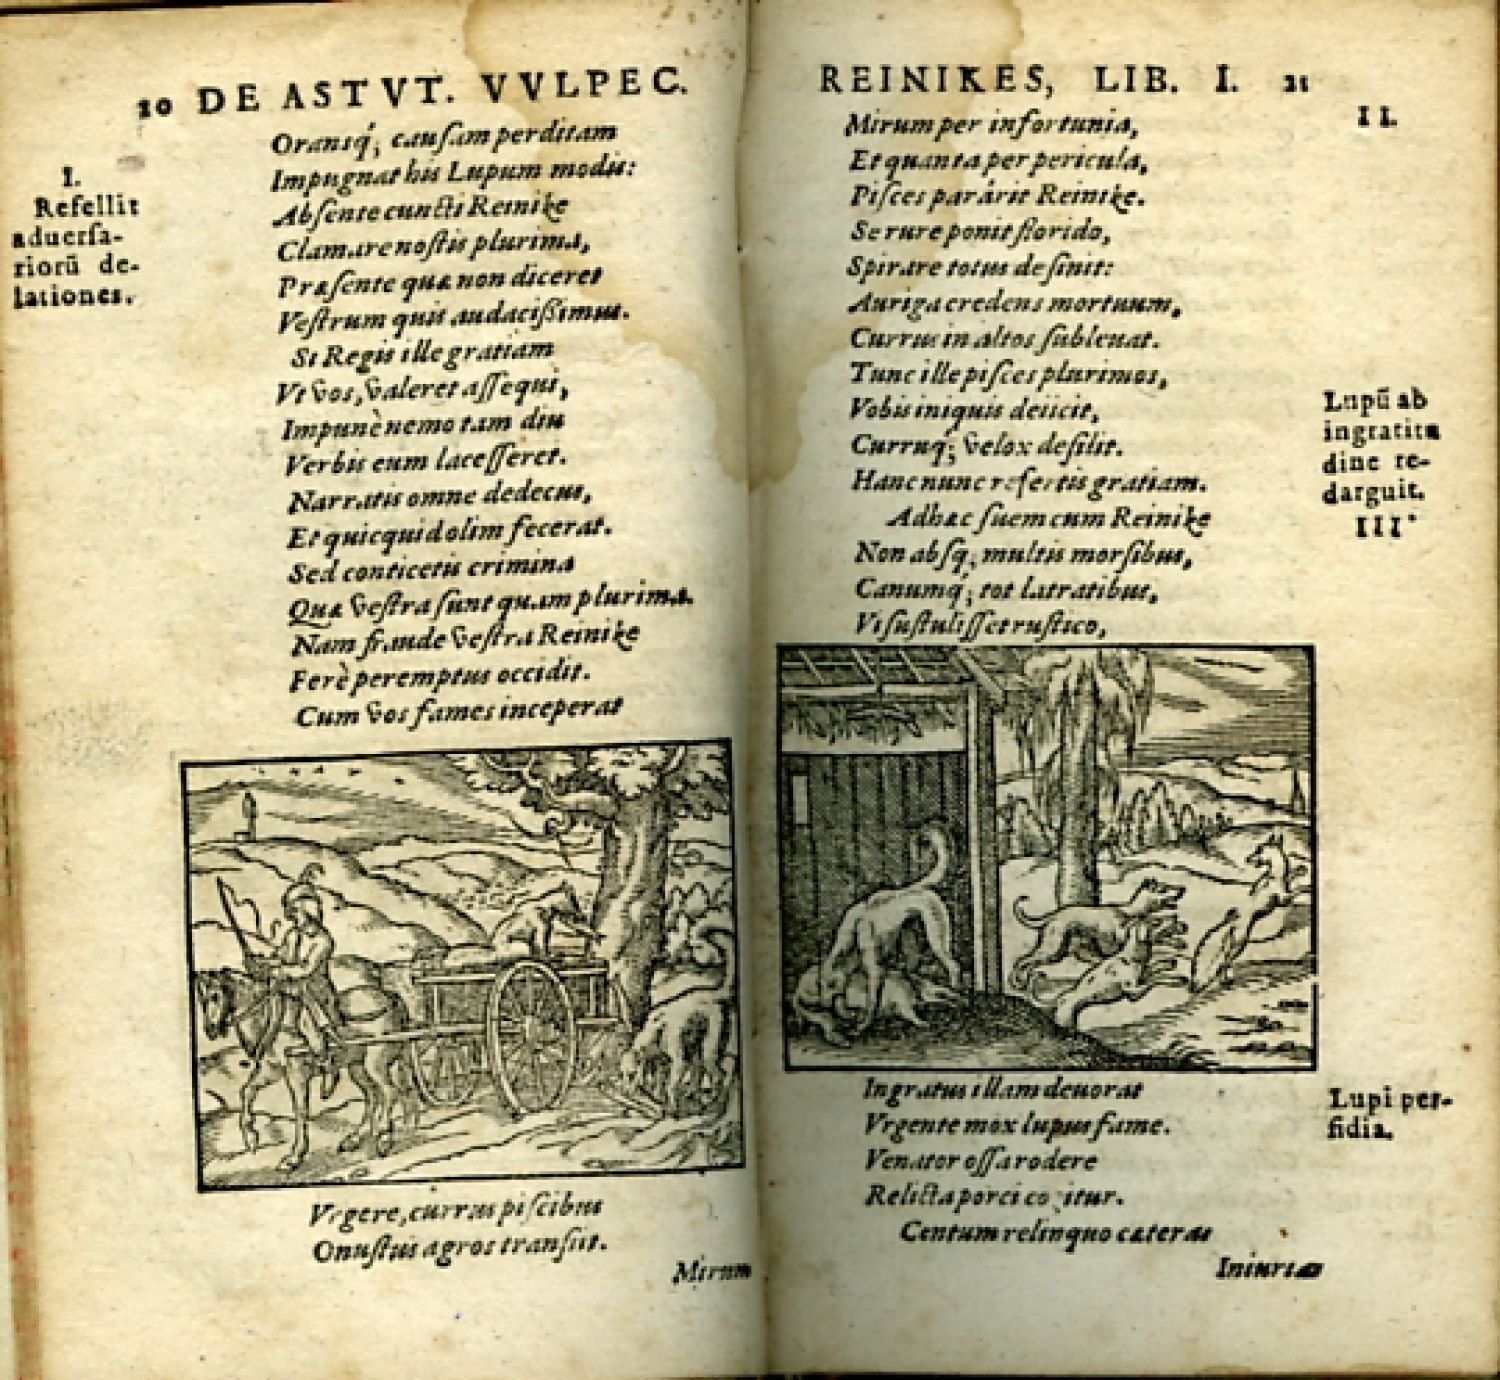 20 DE ASTVT. VVLPEC.
Oransq́; causam perditam
I.
Refellit
aduersa-
riorũ de-
lationes.
Impugnat his Lupum modis:
Absente cuncti Reinike
Clamare nostis plurima,
Præsente quæ non diceret
Vestrum quis audacißimus.
Si Regis ille gratiam
Vt vos, valeret assequi,
Impunè nemo tam diu
Verbis eum lacesseret.
Narratis omne dedecus,
Et quicquid olim fecerat.
Sed conticetis crimina
Quæ vestra sunt quam plurima.
Nam fraude vestra Reinike
Ferè peremptus occidit.
Cum vos fames inceperat
Vrgere, currus piscibus
Onustus agros transiit.
Mirum
REINIKES, LIB. I. 21
Mirum per infortunia,
II.
Et quanta per pericula,
Pisces parârit Reinike.
Se rure ponit florido,
Spirare totus desinit:
Auriga credens mortuum,
Currus in altos subleuat.
Tunc ille pisces plurimos,
Vobis iniquis deiicit,
Curruq́; velox desilit.
Hanc nunc refertis gratiam.
Lupũ ab
ingratitu
dine re-
darguit.
III.
Adhæc suem cum Reinike
Non absq; multis morsibus,
Canumq́; tot latratibus,
Vi sustulisset rustico,
Ingratus illam deuorat
Vrgente mox lupus fame.
Lupi per-
fidia.
Venator ossa rodere
Relicta porci cogitur.
Centum relinquo cæteras
Iniurias